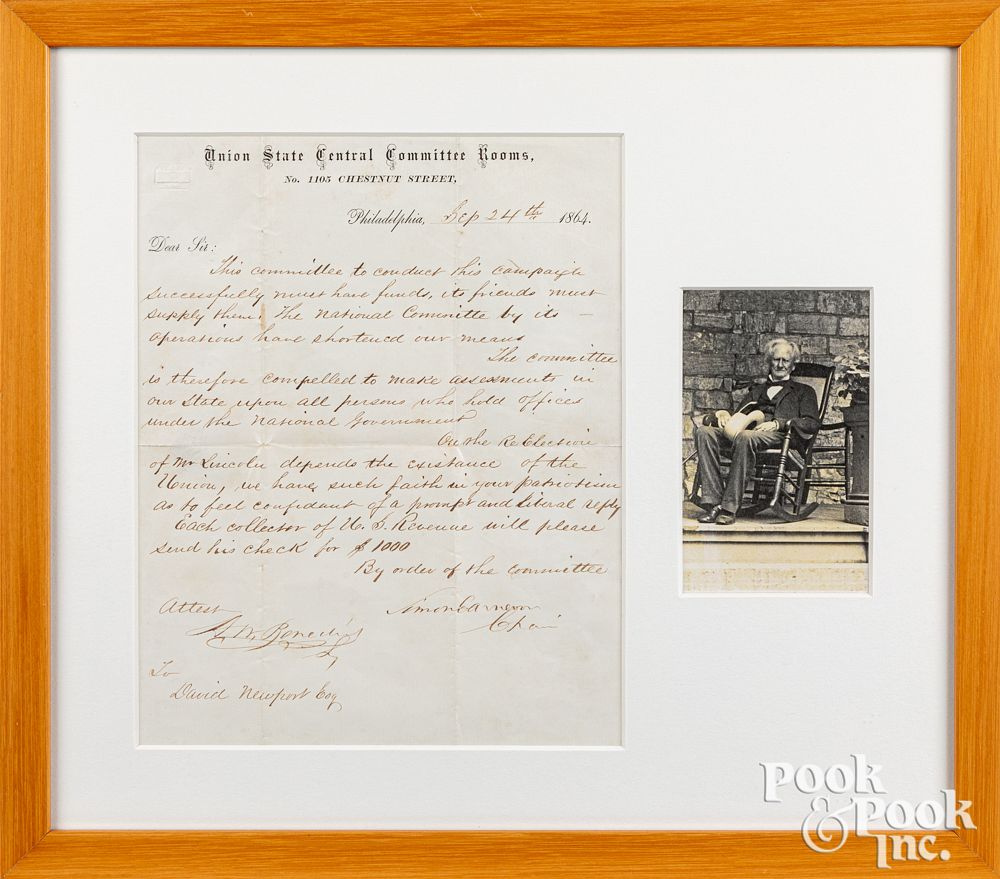 Union State Central Committee Rooms,
No. 1105 CHESTNUT STREET,
Philadelphia, Sep 24th 1864.
Dear Sir:
This committee to conduct this campaign
successfully must have funds, its friends must
supply them. The National Committe by its –
operations have shortened our means
The committee
is therefore compelled to make assessments in
our State upon all persons who hold offices
under the National Government
On the ReElection
of Mr Lincoln depends the existance of the
Union, we have such faith in your patriotism
as to feel confidant of a prompt and liberal reply
Each collector of U. S. Revenue will please
send his check for $ 1000
By order of the committee
Attest
Simon Cameron
Chair
To
David Newport Esq
POOK
& POOK
INC.